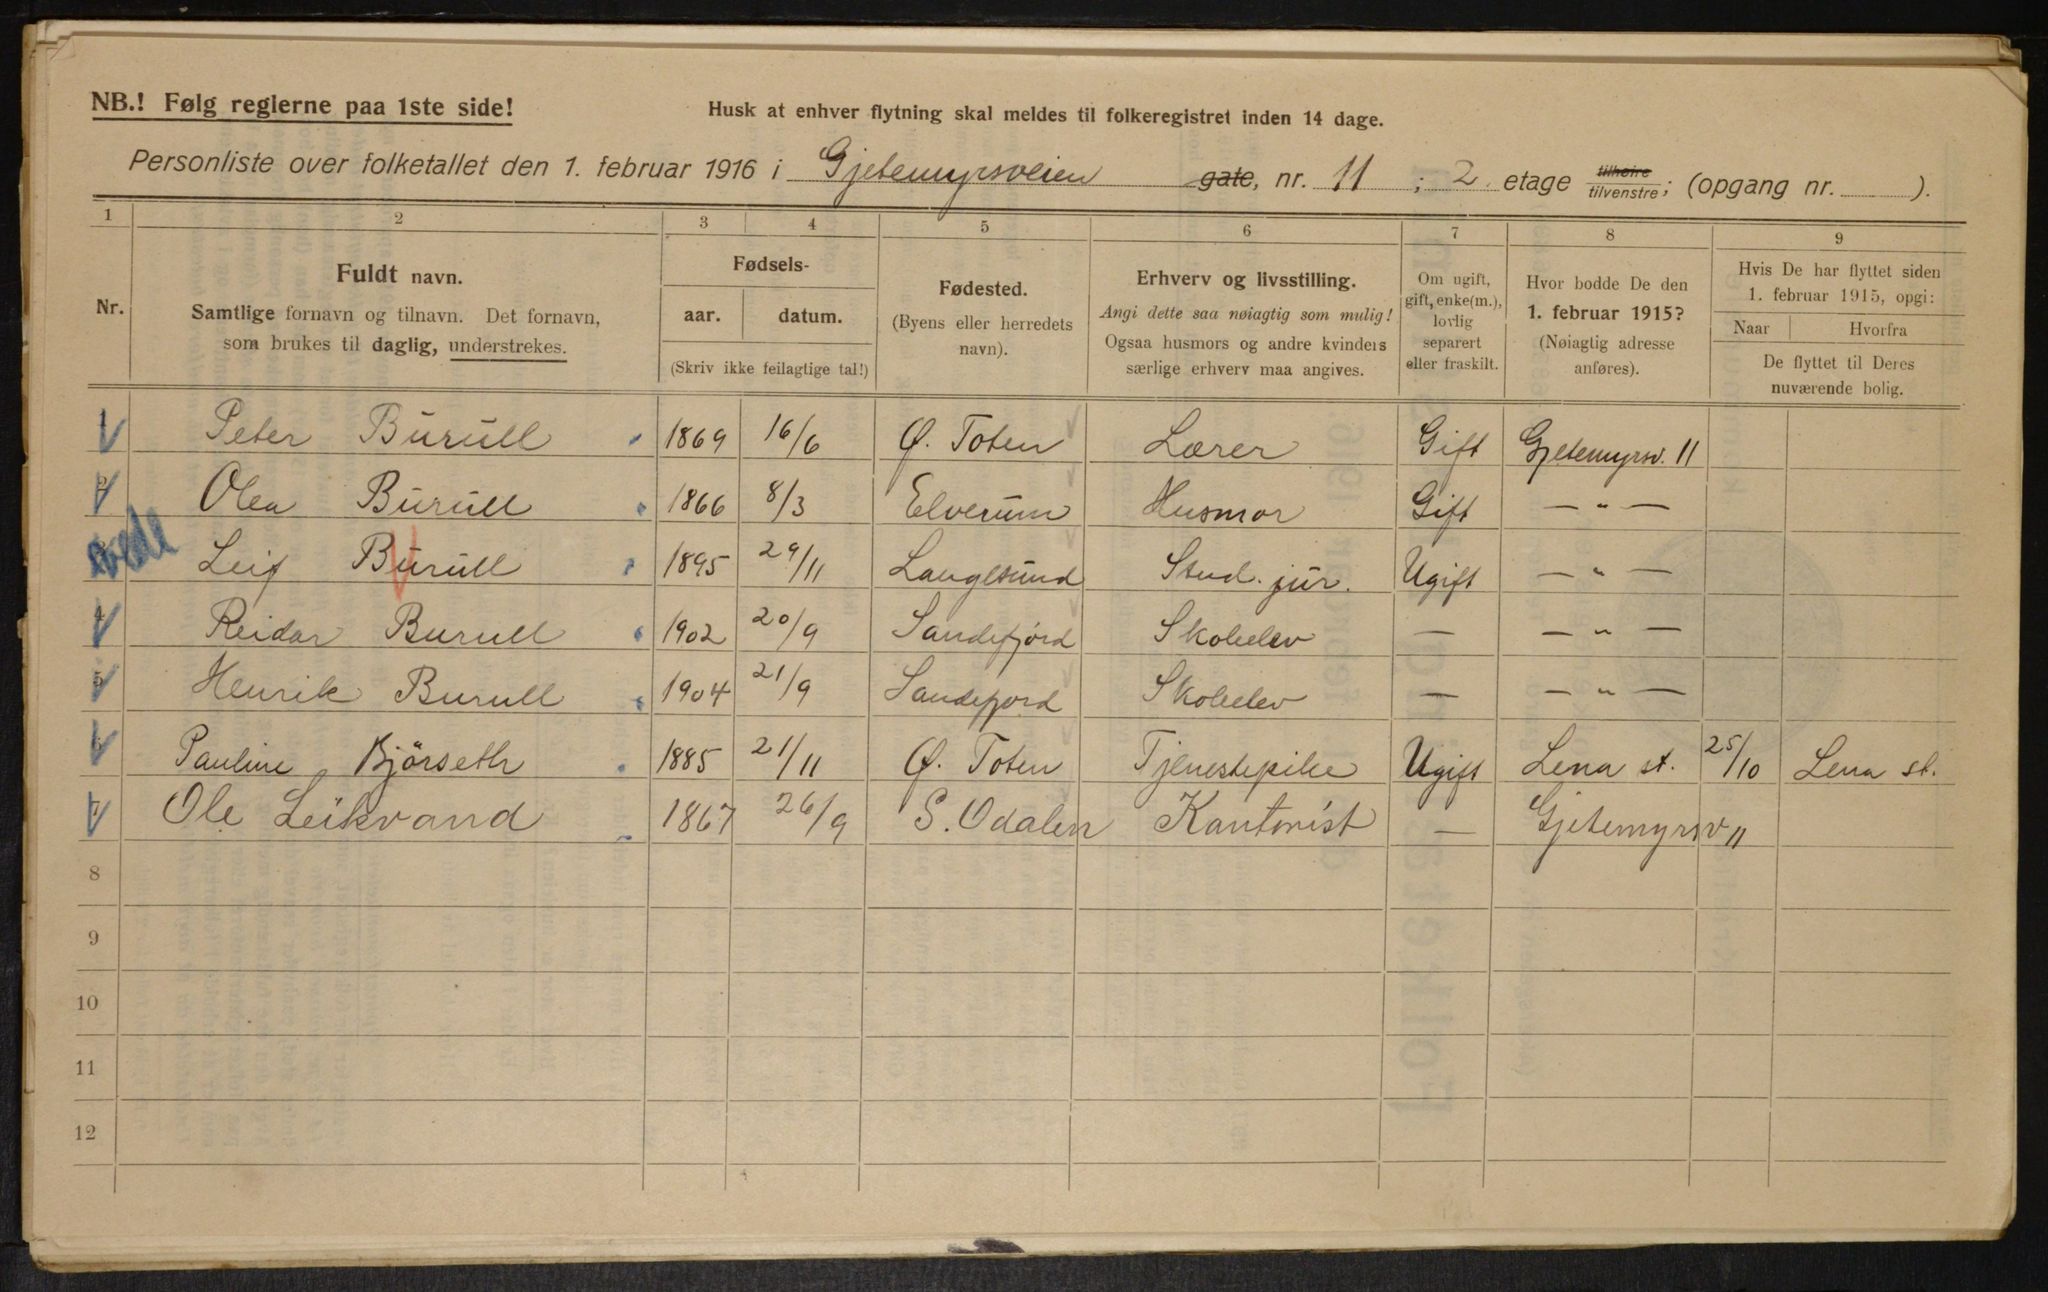 NB.! Følg reglerne paa 1ste side!
Husk at enhver flytning skal meldes til folkeregistret inden 14 dage.
Personliste over folketallet den 1. februar 1916 i Gjetemyrsveien gate, nr. 11 ; 2. etage tilhøire tilvenstre; (opgang nr. ).
1 2 3 4 5 6 7 8 9
Nr.
Fuldt navn.
Samtlige fornavn og tilnavn. Det fornavn,
som brukes til daglig, understrekes.
Fødsels-
aar. datum.
(Skriv ikke feilagtige tal!)
Fødested.
(Byens eller herredets
navn).
Erhverv og livsstilling.
Angi dette saa nøiagtig som mulig!
Ogsaa husmors og andre kvinders
særlige erhverv maa angives.
Om ugift,
gift, enke(m.),
lovlig
separert
eller fraskilt.
Hvor bodde De den
1. februar 1915?
(Nøiagtig adresse
anføres).
Hvis De har flyttet siden
1. februar 1915, opgi:
Naar Hvorfra
De flyttet til Deres
nuværende bolig.
1 Peter Burull 1869 16/6 Ø. Toten Lærer Gift Gjetemyrsv. 11
2 Olea Burull 1866 8/3 Elverum Husmor Gift — " —
Leif Burull 1895 29/11 Langesund Stud. jur. Ugift — " —
4 Reidar Burull 1902 20/9 Sandefjord Skoleelev — — " —
5 Henrik Burull 1904 21/9 Sandefjord Skoleelev — — " —
6 Pauline Bjørseth 1885 21/11 Ø. Toten Tjenestepike Ugift Lena st. 25/10 Lena st.
7 Ole Leikvand 1867 26/9 S. Odalen Kantorist — Gjetemyrsv 11
8
9
10
11
12